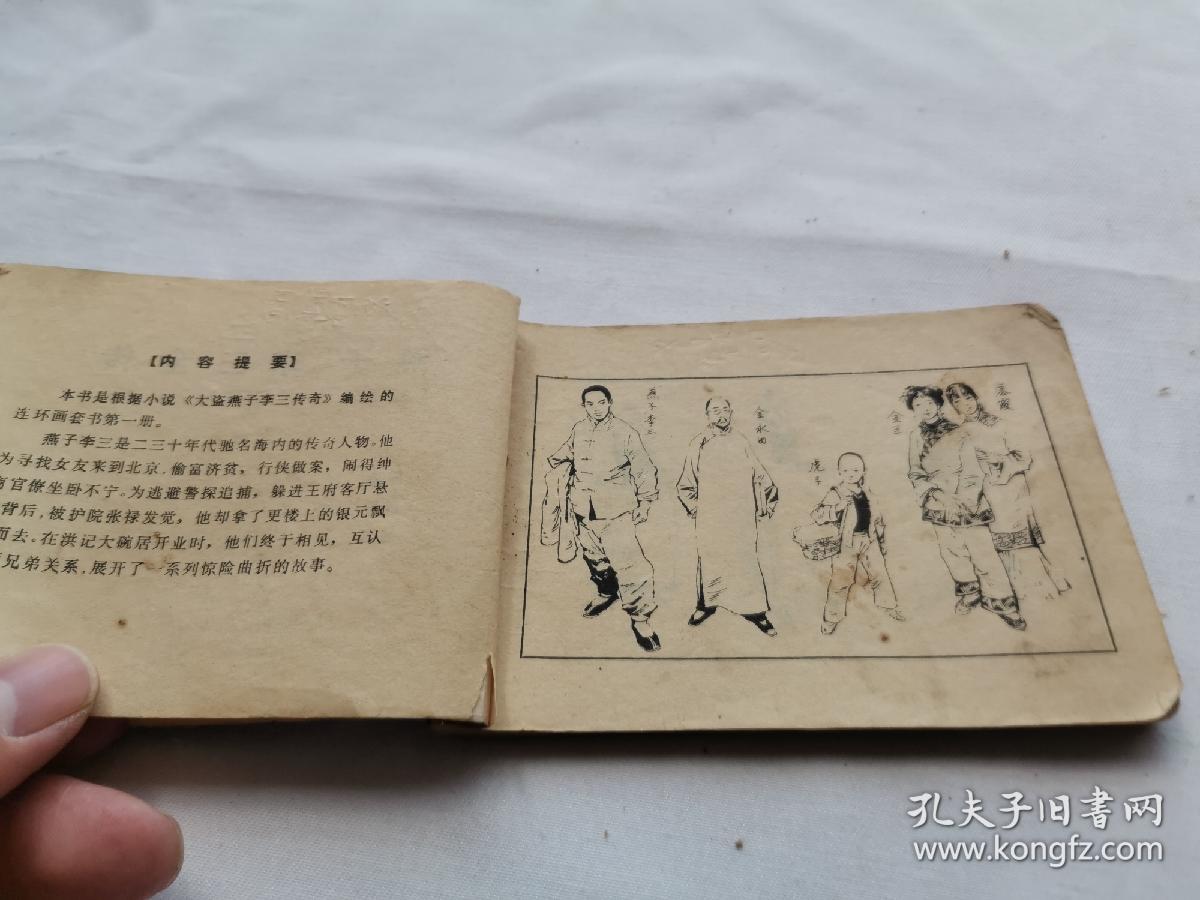 【内容提要】
本书是根据小说《大盗燕子李三传奇》编绘的
连环画套书第一册。
燕子李三是二三十年代驰名海内的传奇人物。他
为寻找女友来到北京，偷富济贫，行侠做案，闹得绅
商官僚坐卧不宁。为逃避警探追捕，躲进王府客厅悬
背后，被护院张禄发觉，他却拿了更楼上的银元飘
而去。在洪记大碗居开业时，他们终于相见，互认
兄弟关系，展开了一系列惊险曲折的故事。
燕子李三
金永田
虎子
金兰
孔夫子旧书网
www.kongfz.com